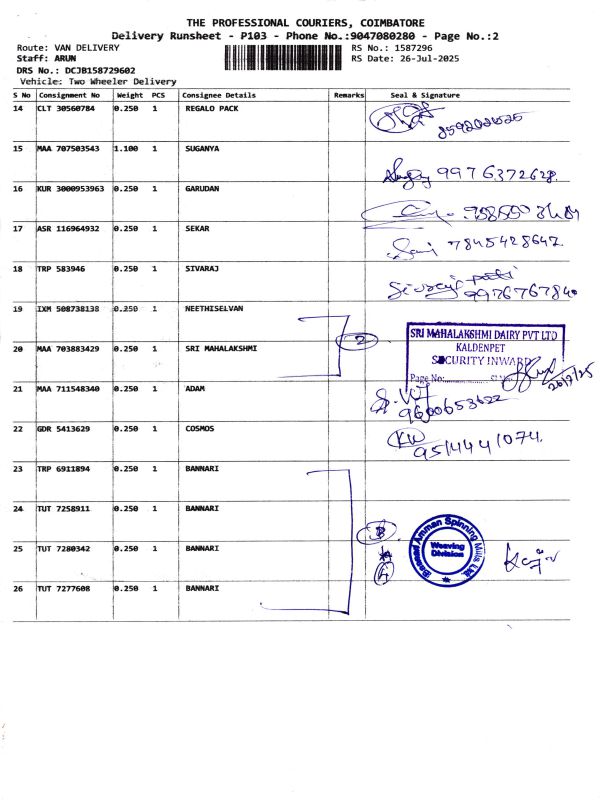 THE PROFESSIONAL COURIERS, COIMBATORE
Delivery Runsheet - P103 - Phone No.:9047080280 - Page No.:2
Route: VAN DELIVERY RS No.: 1587296
Staff: ARUN RS Date: 26-Jul-2025
DRS No.: DCJB158729602
Vehicle: Two Wheeler Delivery
S No Consignment No Weight PCS Consignee Details Remarks Seal & Signature
14 CLT 30560784 0.250 1 REGALO PACK
15 MAA 707503543 1.100 1 SUGANYA 9976372628
16 KUR 3000953963 0.250 1 GARUDAN
17 ASR 116964932 0.250 1 SEKAR 7845428647
18 TRP 583946 0.250 1 SIVARAJ
9976767840
19 IXM 508738138 0.250 1 NEETHISELVAN
2
SRI MAHALAKSHMI DAIRY PVT LTD
KALDENPET
SECURITY INWARD
Page No:
26/7/25
20 MAA 703883429 0.250 1 SRI MAHALAKSHMI
21 MAA 711548340 0.250 1 ADAM
9600653622
22 GDR 5413629 0.250 1 COSMOS
9514441074
23 TRP 6911894 0.250 1 BANNARI
24 TUT 7258911 0.250 1 BANNARI
Bannari Amman Spinning Mills Ltd
Weaving
Division
25 TUT 7280342 0.250 1 BANNARI
4
26 TUT 7277608 0.250 1 BANNARI